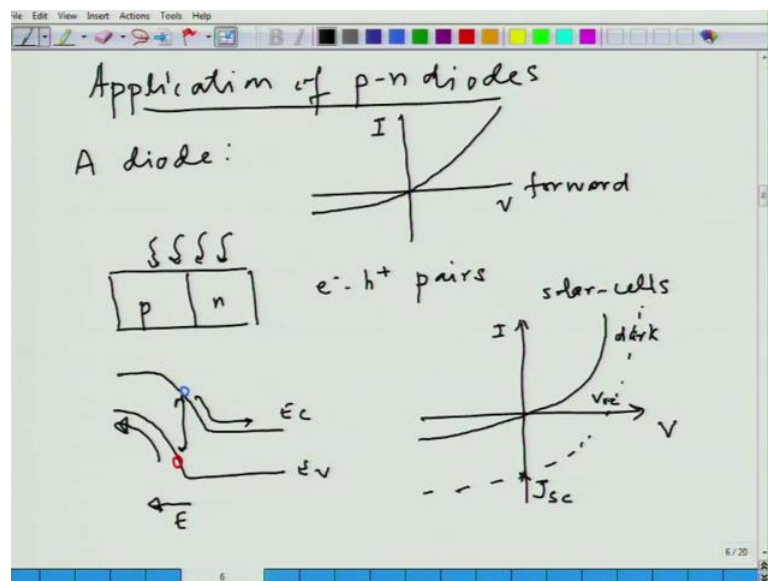 File Edit View Insert Actions Tools Help
Application of p-n diodes
A diode:
I
V forward
p n
e⁻-h⁺ pairs
solar-cells
I
dark
Voc
V
Jsc
EC
EV
E
6/20
6